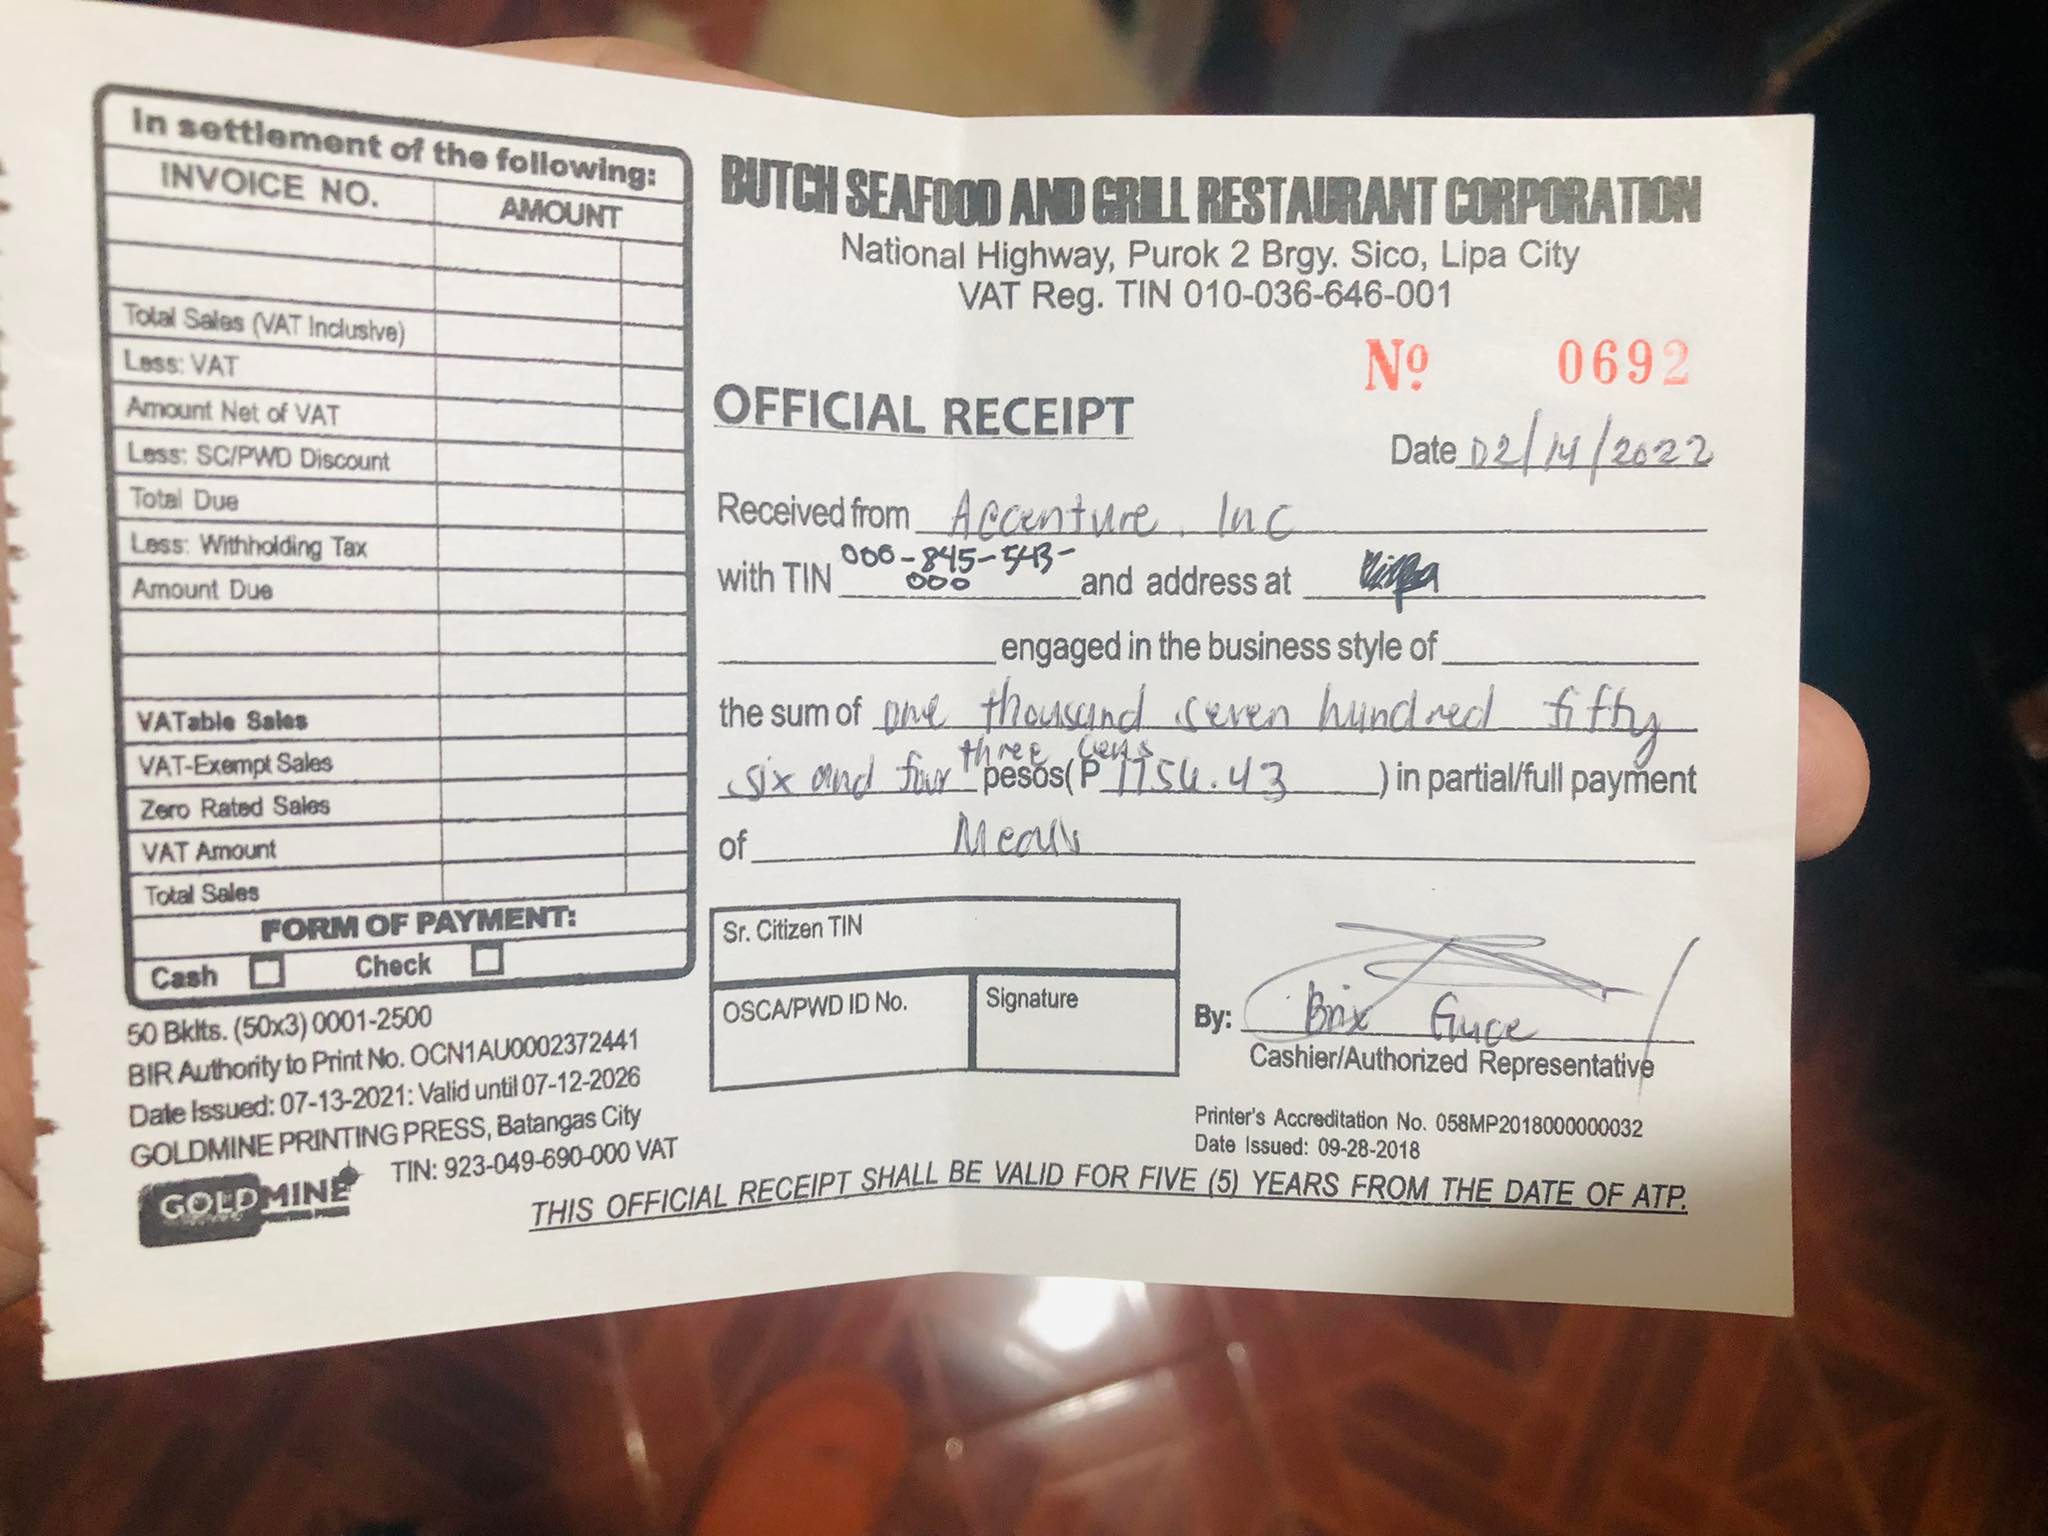 In settlement of the following:
INVOICE NO. AMOUNT
Total Sales (VAT Inclusive)
Less: VAT
Amount Net of VAT
Less: SC/PWD Discount
Total Due
Less: Withholding Tax
Amount Due
VATable Sales
VAT-Exempt Sales
Zero Rated Sales
VAT Amount
Total Sales
FORM OF PAYMENT:
Cash Check
50 Bklts. (50x3) 0001-2500
BIR Authority to Print No. OCN1AU0002372441
Date Issued: 07-13-2021: Valid until 07-12-2026
GOLDMINE PRINTING PRESS, Batangas City
TIN: 923-049-690-000 VAT
GOLDMINE
PRINTING PRESS
BUTCH SEAFOOD AND GRILL RESTAURANT CORPORATION
National Highway, Purok 2 Brgy. Sico, Lipa City
VAT Reg. TIN 010-036-646-001
Nº 0692
OFFICIAL RECEIPT
Date 02/14/2022
Received from Accenture, Inc
with TIN 000-845-543-000 and address at
engaged in the business style of
the sum of one thousand seven hundred fifty
six and four three cens pesos(P 1756.43 ) in partial/full payment
of Meals
Sr. Citizen TIN
OSCA/PWD ID No. Signature
By: Brix Guce
Cashier/Authorized Representative
Printer's Accreditation No. 058MP2018000000032
Date Issued: 09-28-2018
THIS OFFICIAL RECEIPT SHALL BE VALID FOR FIVE (5) YEARS FROM THE DATE OF ATP.